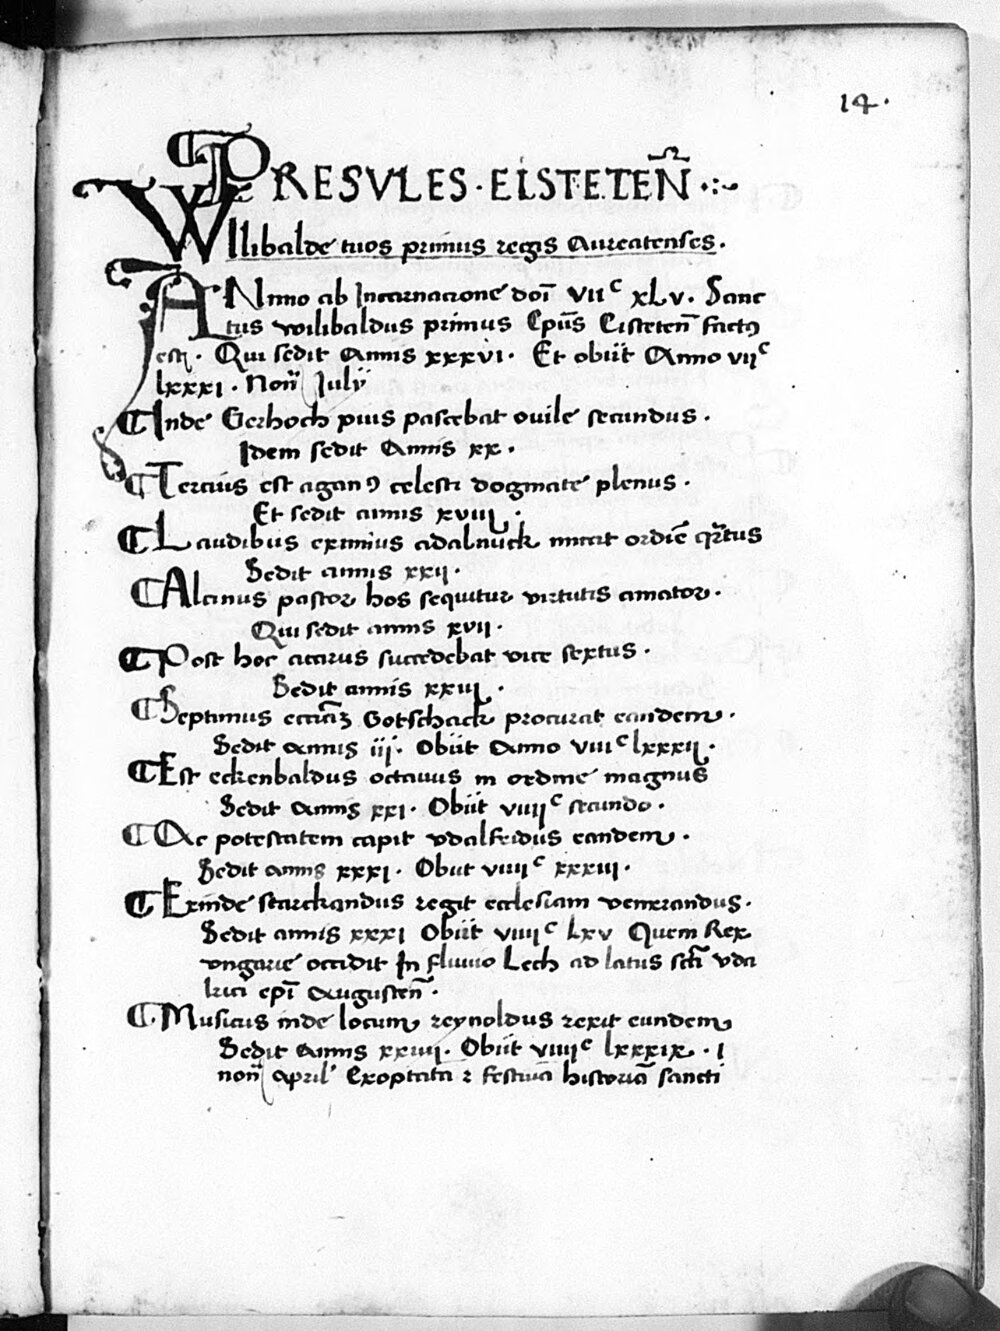 14.
PRESVLES · EISTETEN̄
WIlibalde tuos primus regis Aureatenses.
ANnno ab Incarnacione doī VIIᶜ xLv. Sanc
tus wilibaldus primus Epūs Eistetēn factꝰ
est. Qui sedit Annis xxxvi. Et obiit Anno vijᶜ
lxxxi. Noñ Julij
¶ Inde Gerhoch pius pascebat ouile secundus.
Idem sedit Annis xx.
¶ Tercius est aganꝰ celesti dogmate plenus.
Et sedit annis xviij.
¶ Laudibus eximius adalnuck mitat ordiē qrtus
Sedit annis xxij.
¶ Alcinus pastor hos sequitur virtutis amator.
Qui sedit annis xvij.
¶ Post hoc atarus succedebat vice sextus.
Sedit annis xxiij.
¶ Septimus ecciāz Gotschack procurat eandem.
Sedit Annis iij. Obiit Anno viijᶜ lxxxij.
¶ Est eckenbaldus octauus in ordine magnus
Sedit Annis xxi. Obiit viiijᶜ secundo.
¶ Ac potestatem capit vdalfridus eandem.
Sedit annis xxxi. Obiit viiijᶜ xxxiij.
¶ Exinde starckandus regit ecclesiam venerandus.
Sedit annis xxxi Obiit viiijᶜ lxv Quem Rex
vngarie occidit In fluuio Lech ad latus scti vda
lrici epī Augusteñ.
¶ Musicus inde locum reynoldus rexit eundem
Sedit Annis xxiiij. Obiit viiijᶜ lxxxix. i
noñ April' Exoptata ꝛ festiuā historiā sancti